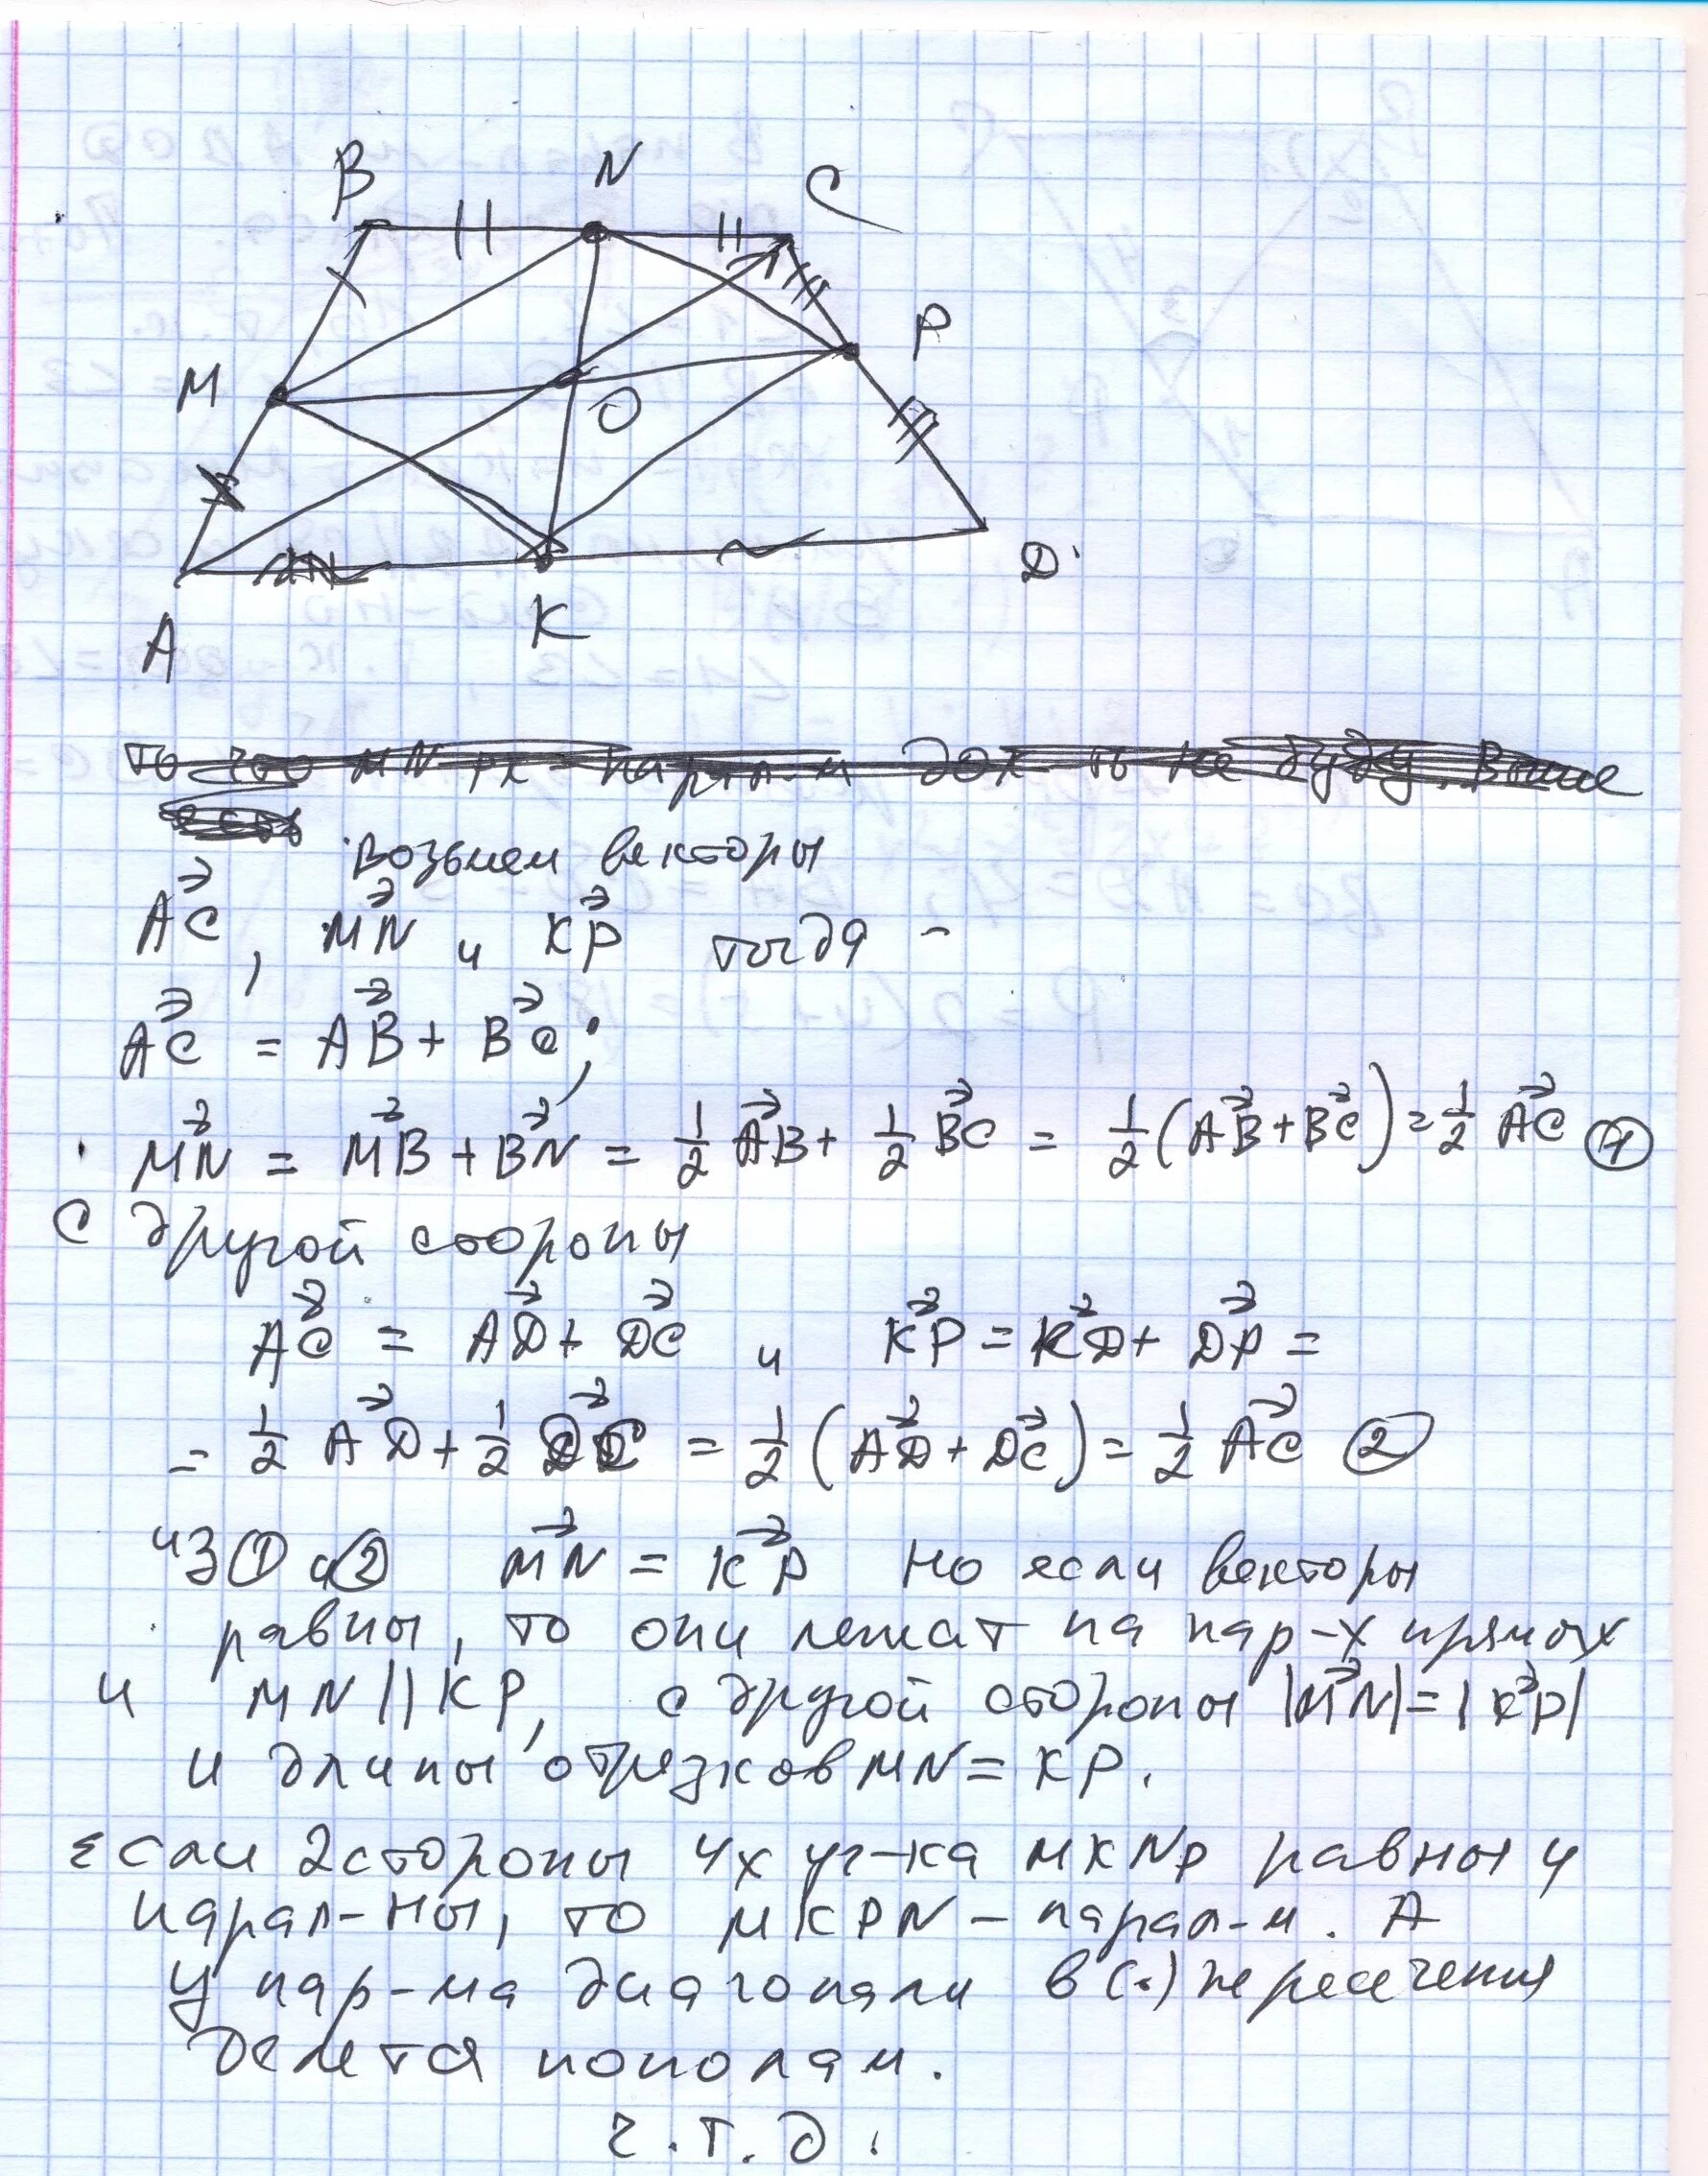 B N C
P
M
O
D
K
A
То что MNPK - парал-м док-ть не буду. Выше
есть
Возьмем векторы
AC, MN и KP тогда -
AC = AB + BC;
MN = MB + BN = 1/2 AB + 1/2 BC = 1/2 (AB + BC) = 1/2 AC ①
С другой стороны
AC = AD + DC и KP = KD + DP =
= 1/2 AD + 1/2 DC = 1/2 (AD + DC) = 1/2 AC ②
из ① и ② MN = KP Но если векторы
равны, то они лежат на пар-х прямых
и MN || KP, с другой стороны |MN| = |KP|
и длины отрезков MN = KP.
Если 2 стороны 4х уг-ка MKNP равны и
парал-ны, то MKPN - парал-м. А
у пар-ма диагонали в (·) пересечения
делятся пополам.
ч.т.д.